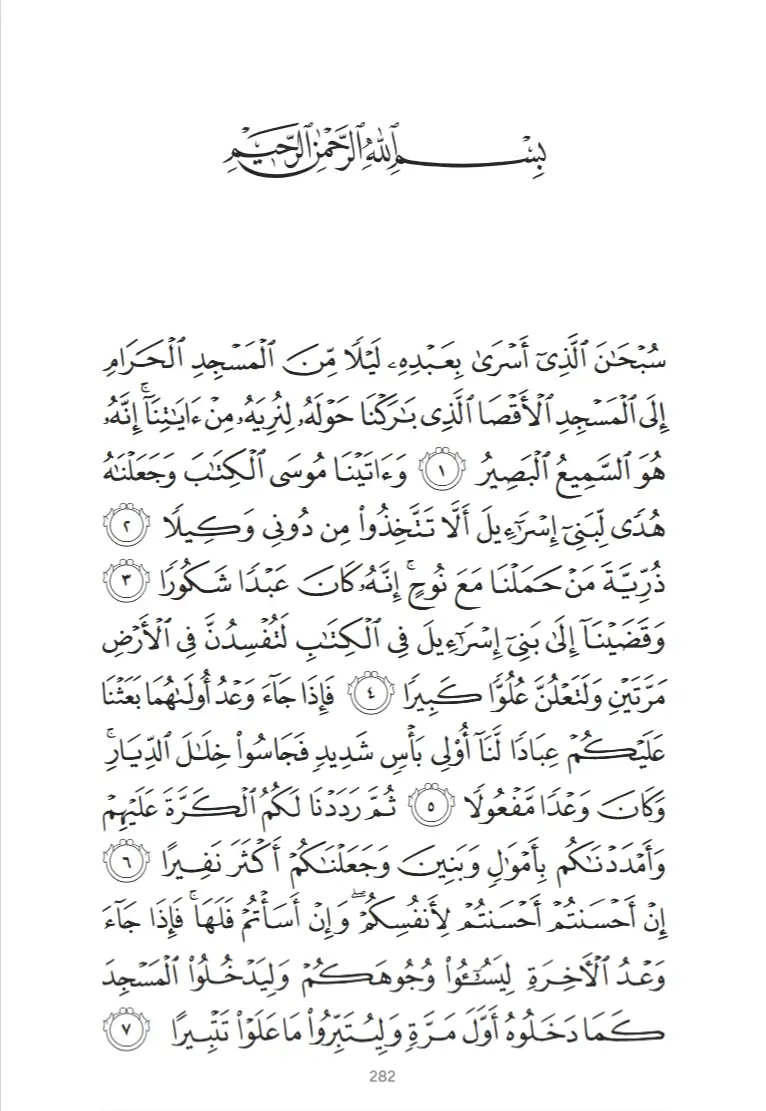 بِسْمِ ٱللَّهِ ٱلرَّحْمَٰنِ ٱلرَّحِيمِ
سُبْحَٰنَ ٱلَّذِىٓ أَسْرَىٰ بِعَبْدِهِۦ لَيْلًا مِّنَ ٱلْمَسْجِدِ ٱلْحَرَامِ
إِلَى ٱلْمَسْجِدِ ٱلْأَقْصَا ٱلَّذِى بَٰرَكْنَا حَوْلَهُۥ لِنُرِيَهُۥ مِنْ ءَايَٰتِنَآ ۚ إِنَّهُۥ
هُوَ ٱلسَّمِيعُ ٱلْبَصِيرُ ١ وَءَاتَيْنَا مُوسَى ٱلْكِتَٰبَ وَجَعَلْنَٰهُ
هُدًى لِّبَنِىٓ إِسْرَٰٓءِيلَ أَلَّا تَتَّخِذُوا۟ مِن دُونِى وَكِيلًا ٢
ذُرِّيَّةَ مَنْ حَمَلْنَا مَعَ نُوحٍ ۚ إِنَّهُۥ كَانَ عَبْدًا شَكُورًا ٣
وَقَضَيْنَآ إِلَىٰ بَنِىٓ إِسْرَٰٓءِيلَ فِى ٱلْكِتَٰبِ لَتُفْسِدُنَّ فِى ٱلْأَرْضِ
مَرَّتَيْنِ وَلَتَعْلُنَّ عُلُوًّا كَبِيرًا ٤ فَإِذَا جَآءَ وَعْدُ أُولَىٰهُمَا بَعَثْنَا
عَلَيْكُمْ عِبَادًا لَّنَآ أُو۟لِى بَأْسٍ شَدِيدٍ فَجَاسُوا۟ خِلَٰلَ ٱلدِّيَارِ ۚ
وَكَانَ وَعْدًا مَّفْعُولًا ٥ ثُمَّ رَدَدْنَا لَكُمُ ٱلْكَرَّةَ عَلَيْهِمْ
وَأَمْدَدْنَٰكُم بِأَمْوَٰلٍ وَبَنِينَ وَجَعَلْنَٰكُمْ أَكْثَرَ نَفِيرًا ٦
إِنْ أَحْسَنتُمْ أَحْسَنتُمْ لِأَنفُسِكُمْ ۖ وَإِنْ أَسَأْتُمْ فَلَهَا ۚ فَإِذَا جَآءَ
وَعْدُ ٱلْءَاخِرَةِ لِيَسُۥٓـُٔوا۟ وُجُوهَكُمْ وَلِيَدْخُلُوا۟ ٱلْمَسْجِدَ
كَمَا دَخَلُوهُ أَوَّلَ مَرَّةٍ وَلِيُتَبِّرُوا۟ مَا عَلَوْا۟ تَتْبِيرًا ٧
282